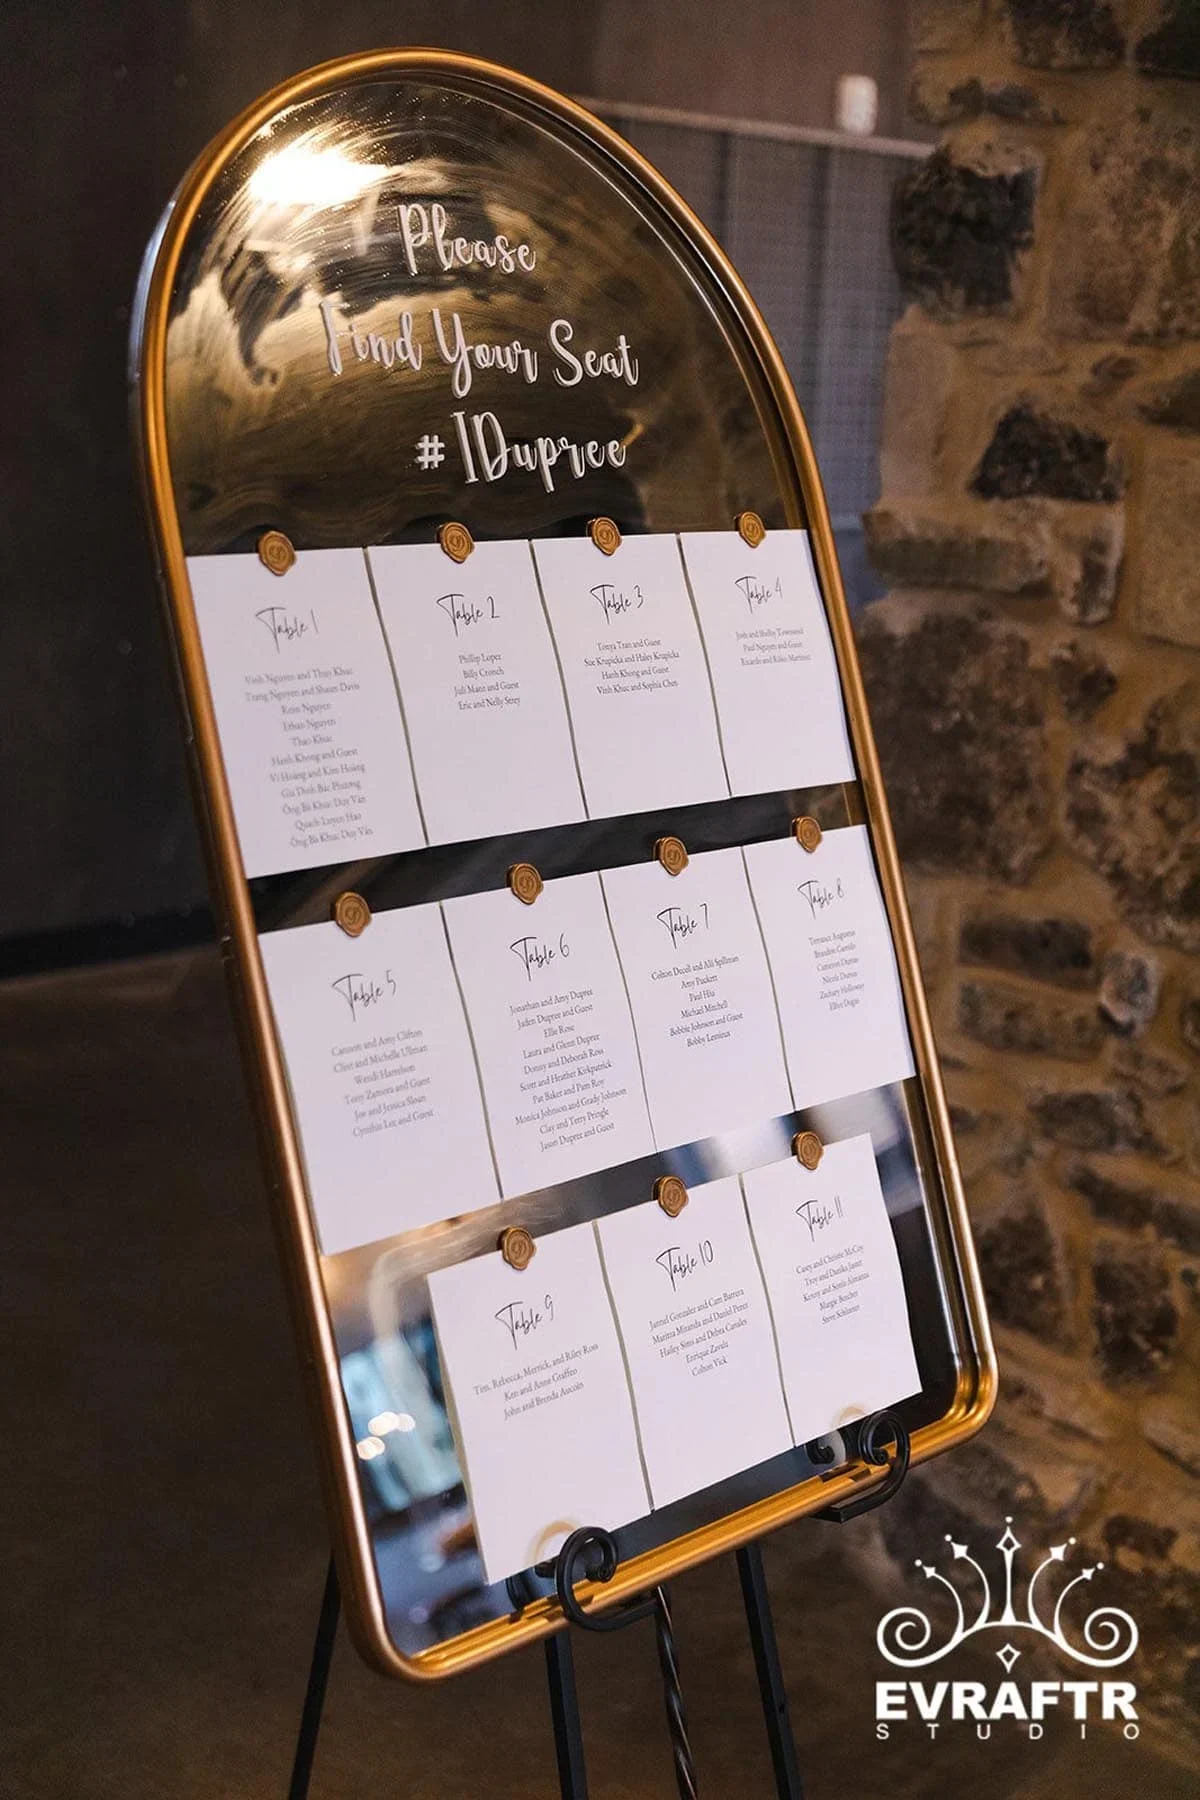 Please
Find Your Seat
# IDupree
Table 1
Vinh Nguyen and Thuy Khuc
Trang Nguyen and Shaun Davis
Nguyen
Ethan Nguyen
Thao Khuc
Hanh Khong and Guest
Vi Hoang and Kim Hoang
Gia Dinh Bác Phương
Ông Bà Khuc Duy Van
Quach Luyen Hao
Ông Bà Khuc Duy Văn
Table 2
Phillip Lopez
Billy Cronch
Juli Mann and Guest
Eric and Nelly Strey
Table 3
Tonya Tran and Guest
Sue Krupicka and Haley Krupicka
Hanh Khong and Guest
Vinh Khuc and Sophia Chen
Table 4
Josh and Shelby Townsend
Paul Nguyen and Guest
Ricardo and Martinez
Table 5
Cameron and Amy Clifton
Clint and Michelle Ullman
Wendi Harrelson
Tony Zamora and Guest
Joe and Jessica Sloan
Cynthia Lee and Guest
Table 6
Jonathan and Amy Dupree
Jaden Dupree and Guest
Ellie Rose
Laura and Glenn Dupree
Donny and Deborah Ross
Scott and Heather Kirkpatrick
Pat Baker and Pam Roy
Monica Johnson and Grady Johnson
Clay and Terry Pringle
Jason Dupree and Guest
Table 7
Colton Duzell and Alli Spillman
Amy Puckett
Paul Hiu
Michael Mitchell
Bobbie Johnson and Guest
Bobby Lemieux
Table 8
Terrance Augustus
Brandon Garrido
Cameron Dumas
Nicole Duron
Zachary Holloway
Elliot Dugas
Table 9
Tim, Rebecca, Merrick, and Riley Ross
Ken and Anne Graffeo
John and Brenda Aucoin
Table 10
Jannel Gonzalez and Cam Barrera
Maritza Miranda and Daniel Perez
Hailey Sims and Debra Canales
Enrique Zavala
Colton Vick
Table 11
Casey and Christie McCoy
Troy and Danika Juster
Kenny and Sonia Almanza
Margie Boscher
Steve Schlosser
EVRAFTR
STUDIO